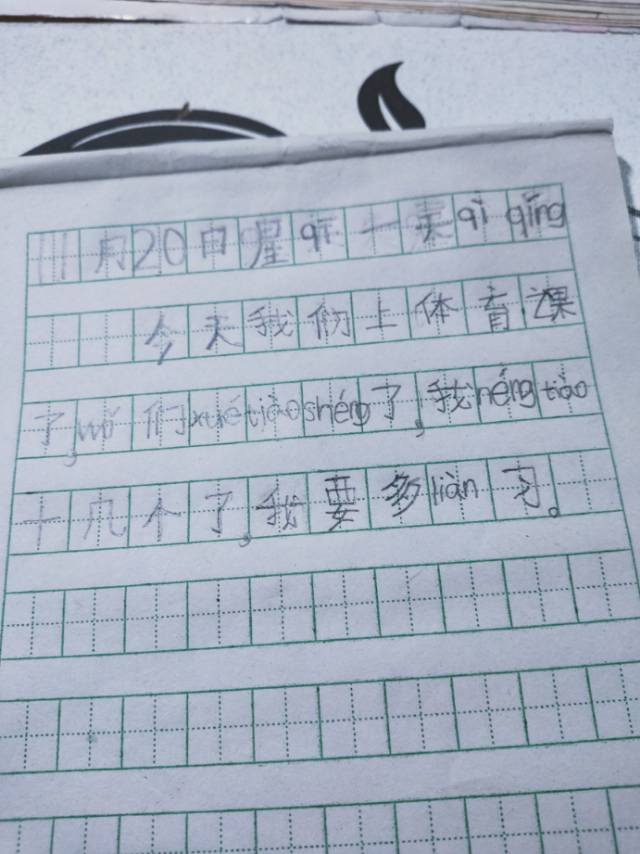 11月20日星qī一天qì qíng
今天我们上体育课
了,wǒ们xué tiào shéng了,我néng tiào
十几个了,我要多liàn习。